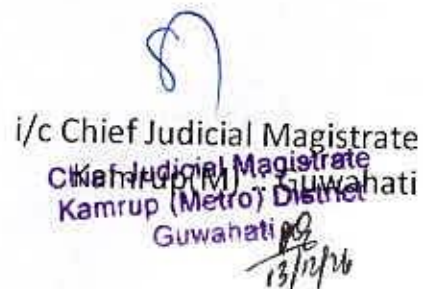 i/c Chief Judicial Magistrate
Kamrup(M) :: Guwahati
Chief Judicial Magistrate
Kamrup (Metro) District
Guwahati